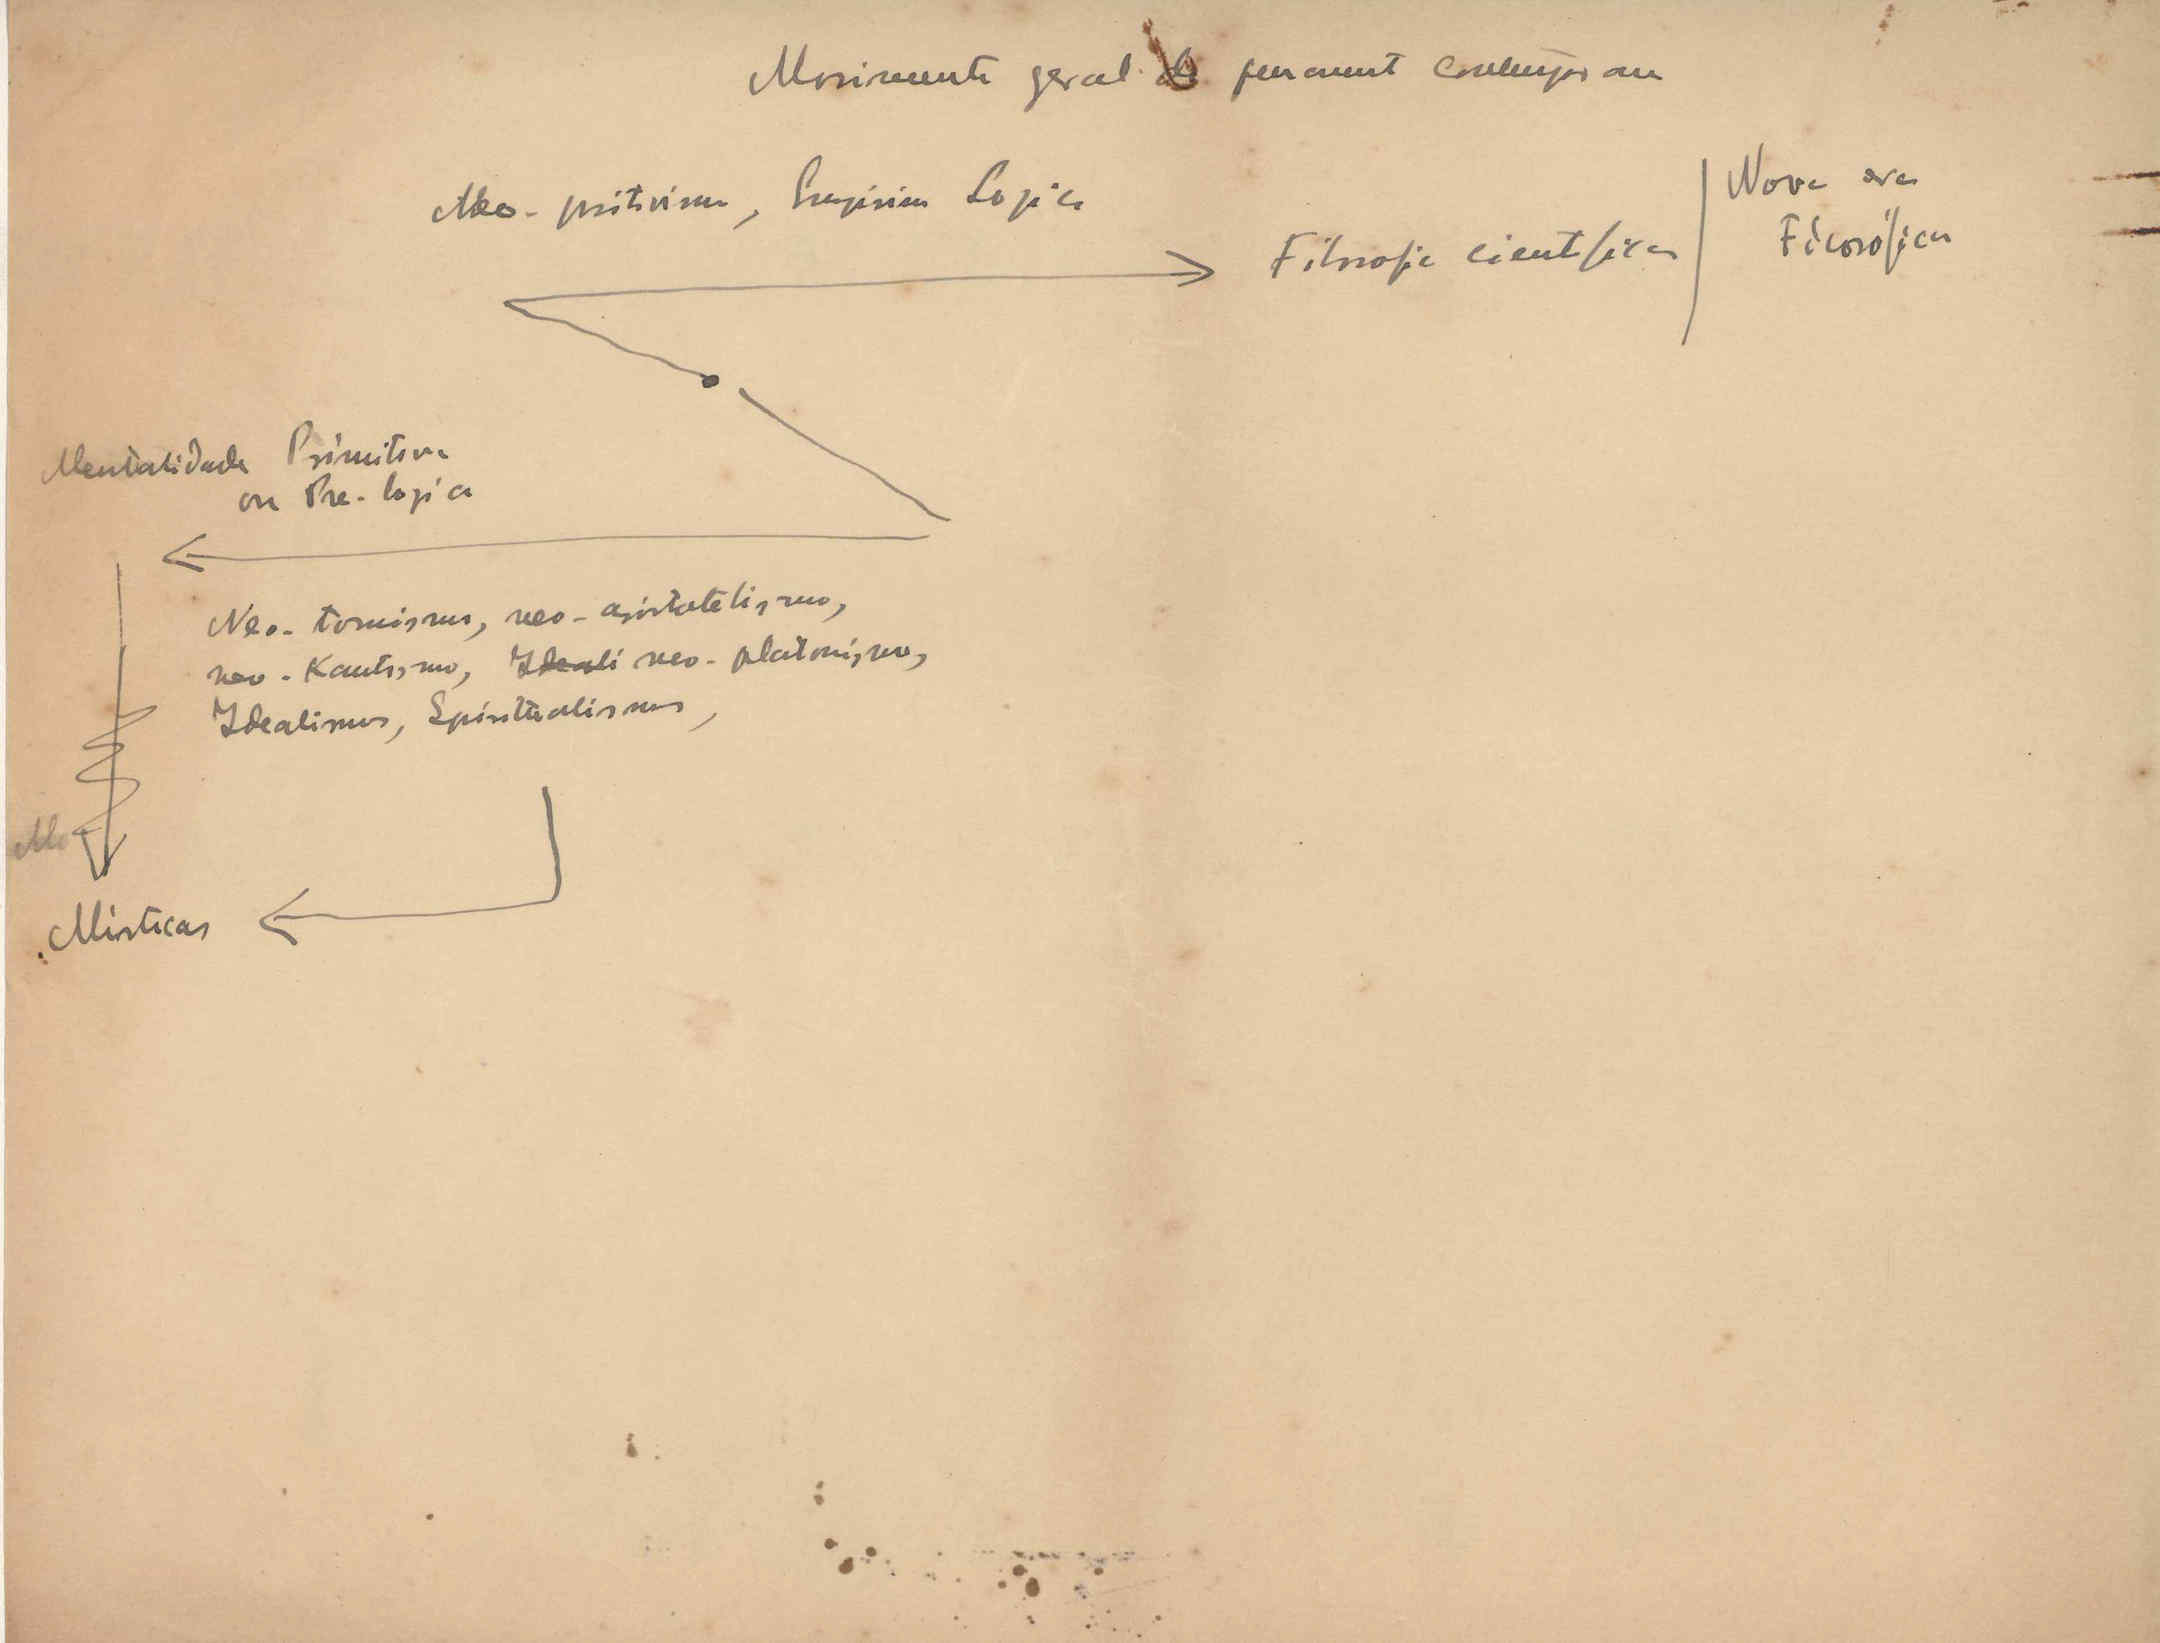 Movimento geral do pensamento contemporaneo
Neo-positivismo, Empirismo Logico
Filosofia cientifica
Nova era
Filosófica
Mentalidade Primitiva
ou Pre-logica
Neo-tomismo, neo-aristotelismo,
neo-Kantismo, Ideali neo-platonismo,
Idealismo, Espiritualismo,
Misticas